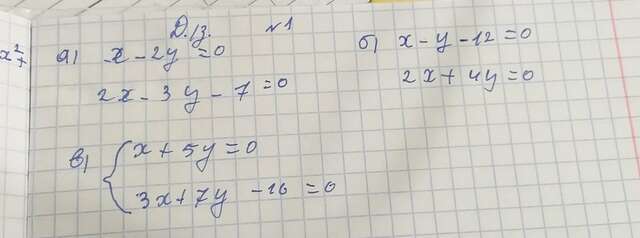 Д.з. №1
x²+
а) x - 2y = 0
2x - 3y - 7 = 0
б) x - y - 12 = 0
2x + 4y = 0
в) { x + 5y = 0
3x + 7y - 16 = 0